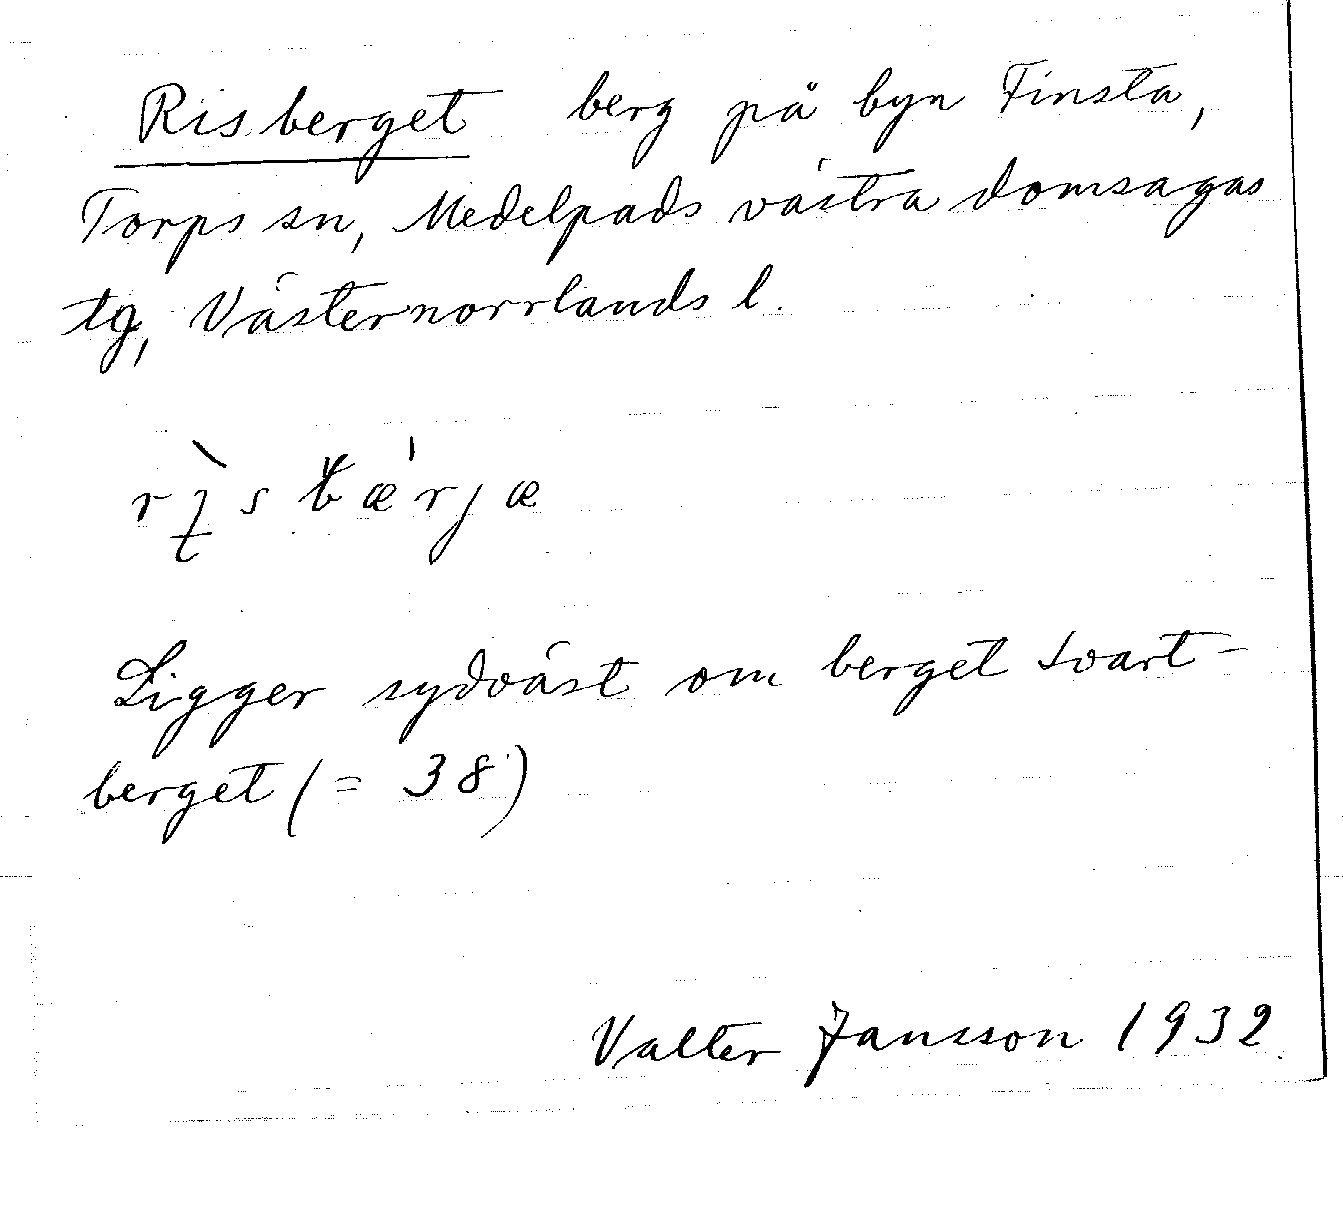 Risberget berg på byn Finsta,
Torps sn, Medelpads västra domsagas
tg, Västernorrlands l.
Ligger sydväst om berget Svart-
berget (= 38)
Valter Jansson 1932